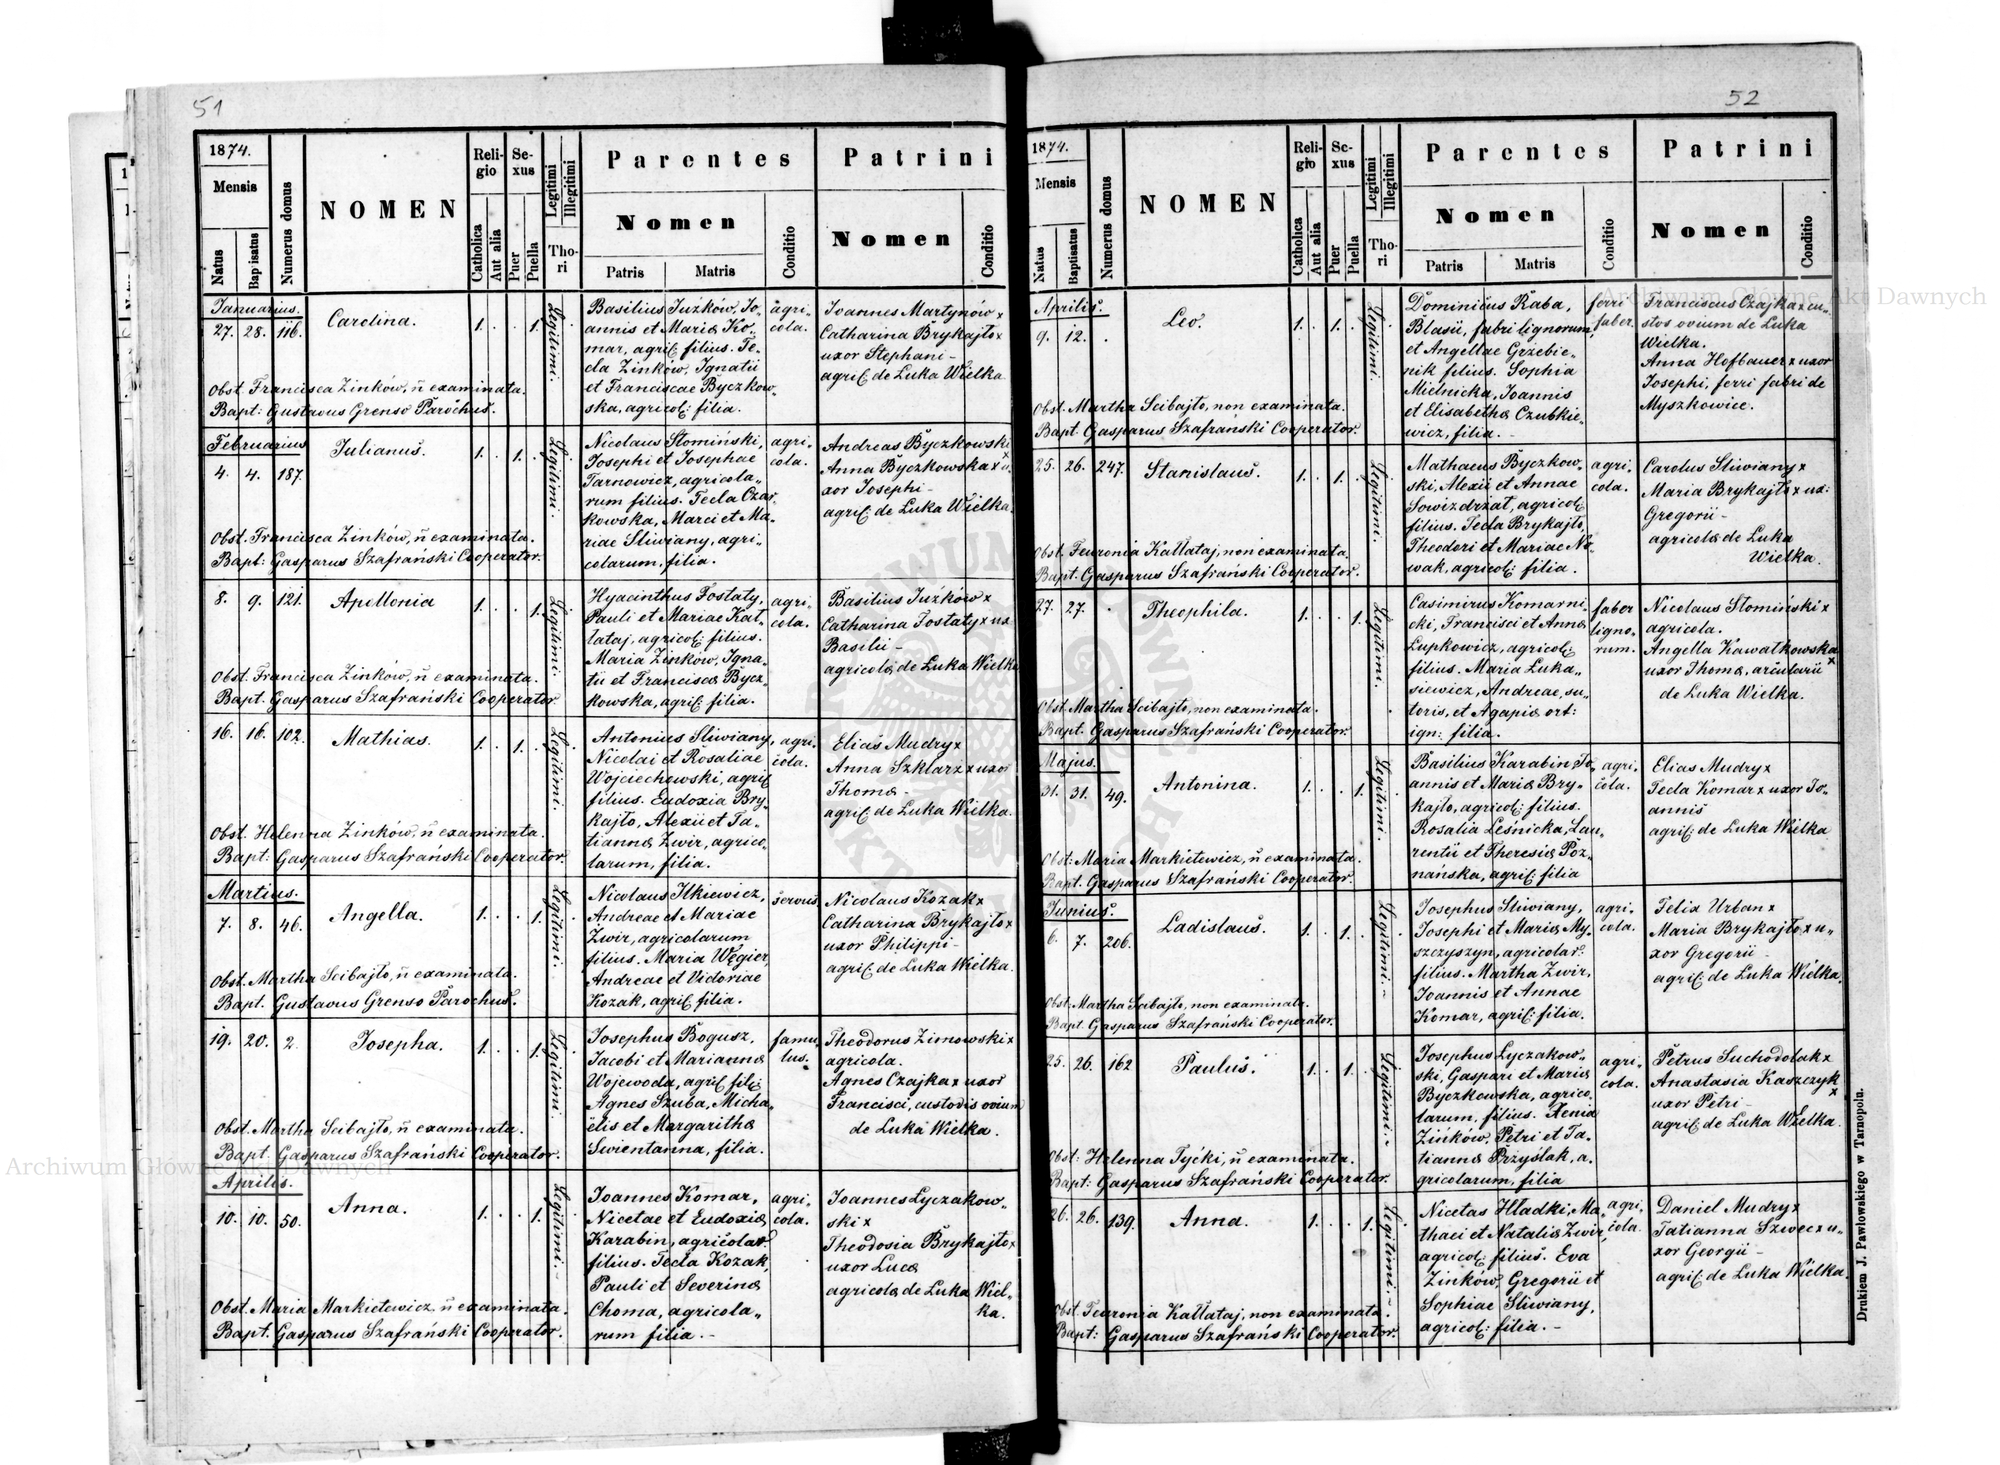 51
1874.
Mensis
Natus
Baptisatus
Numerus domus
NOMEN
Religio
Catholica
Aut alia
Sexus
Puer
Puella
Legitimi
Illegitimi
Thori
Parentes
Nomen
Patris
Matris
Conditio
Patrini
Nomen
Conditio
Januarius.
27. 28. 116. Carolina. 1. . . 1. Legitimi.
Basilius Juzków, Jo-
annis et Mariæ Ko-
mar, agric: filius. Te-
cla Zinków, Ignatii
et Franciscae Byczkow-
ska, agricol: filia.
agri-
cola.
Joannes Martynów x
Catharina Brykajło x
uxor Stephani -
agric: de Luka Wielka
Obst. Francisca Zinków, n̄ examinata.
Bapt: Gustavus Grenso Parochus.
Februarius
4. 4. 187. Julianus. 1. . 1. . Legitimi.
Nicolaus Słomiński,
Josephi et Josephae
Tarnowicz, agricola-
rum filius. Tecla Czar-
kowska, Marci et Ma-
riae Sliwiany, agri-
colarum, filia.
agri-
cola.
Andreas Byczkowski x
Anna Byczkowska x u-
xor Josephi -
agric: de Luka Wielka.
Obst. Francisca Zinków, n̄ examinata.
Bapt: Gasparus Szafrański Cooperator.
8. 9. 121. Apollonia 1. . . 1. Legitimi.
Hyacinthus Tostaty,
Pauli et Mariae Kał-
łataj, agricol: filius.
Maria Zinków, Igna-
tii et Franciscæ Bycz-
kowska, agric: filia.
agri-
cola.
Basilius Juzków x
Catharina Tostaty x ux:
Basilii -
agricolæ de Luka Wielka
Obst. Francisca Zinków, n̄ examinata.
Bapt. Gasparus Szafrański Cooperator.
16. 16. 102. Mathias. 1. . 1. . Legitimi.
Antonius Sliwiany,
Nicolai et Rosaliae
Wojciechowski, agric:
filius. Eudoxia Bry-
kajło, Alexii et Ta-
tiannæ Zwir, agrico-
larum, filia.
agri-
cola.
Elias Mudry x
Anna Szklarz x uxor
Thomæ -
agric: de Luka Wielka.
Obst. Helenna Zinków, n̄ examinata.
Bapt: Gasparus Szafrański Cooperator.
Martius.
7. 8. 46. Angella. 1. . . 1. Legitimi.
Nicolaus Ilkiewicz,
Andreae et Mariae
Zwir, agricolarum
filius. Maria Węgier,
Andreae et Victoriae
Kozak, agric: filia.
servus
Nicolaus Kozak x
Catharina Brykajło x
uxor Philippi -
agric: de Luka Wielka.
Obst. Martha Scibajło, n̄ examinata.
Bapt. Gustavus Grenso Parochus.
19. 20. 2. Josepha. 1. . . 1. Legitimi.
Josephus Bogusz,
Jacobi et Mariannæ
Wojewoda, agric: fili:
Agnes Szuba, Micha-
ëlis et Margarithæ
Swientanna, filia.
famu-
lus.
Theodorus Zimowski x
agricola.
Agnes Czajka x uxor
Francisci, custodis ovium
de Luka Wielka.
Obst. Martha Scibajło, n̄ examinata.
Bapt. Gasparus Szafrański Cooperator.
Aprilis.
10. 10. 50. Anna. 1. . . 1. Legitimi.-
Joannes Komar,
Nicetae et Eudoxiæ
Karabin, agricolar:
filius. Tecla Kozak,
Pauli et Severinæ
Choma, agricola-
rum filia. -
agri-
cola.
Joannes Lyczakow-
ski x
Theodosia Brykajło x
uxor Lucæ
agricolæ de Luka Wiel-
ka.
Obst. Maria Markietewicz, n̄ examinata.
Bapt. Gasparus Szafrański Cooperator.
52
1874.
Mensis
Natus
Baptisatus
Numerus domus
NOMEN
Religio
Catholica
Aut alia
Sexus
Puer
Puella
Legitimi
Illegitimi
Thori
Parentes
Nomen
Patris
Matris
Conditio
Patrini
Nomen
Conditio
Aprilis.
9. 12. . Leo. 1. . 1. . Legitimi.
Dominicus Raba,
Blasii, fabri lignorum,
et Angellae Grzebie-
nik filius. Sophia
Mielnicka, Joannis
et Elisabethæ Czubkie-
wicz, filia. -
ferri
faber.
Franciscus Czajka x cu-
stos ovium de Luka
Wielka.
Anna Hofbauer x uxor
Josephi, ferri fabri de
Myszkowice.
Obst. Martha Scibajło, non examinata.
Bapt. Gasparus Szafrański Cooperator.
25. 26. 247. Stanislaus. 1. . 1. . Legitimi.
Mathaeus Byczkow-
ski, Alexii et Annae
Sowizdrzał, agricol:
filius. Tecla Brykajło,
Theodori et Mariae No-
wak, agricol: filia.
agri-
cola.
Carolus Sliwiany x
Maria Brykajło x ux:
Gregorii -
agricolæ de Luka
Wielka.
Obst. Feuronia Kałłataj, non examinata.
Bapt. Gasparus Szafrański Cooperator.
27. 27. . Theophila. 1. . . 1. Legitimi.
Casimirus Komarni-
cki, Francisci et Annæ
Lupkowicz, agricol:
filius. Maria Luka-
siewicz, Andreae, su-
toris, et Agapiæ ort:
ign: filia.
faber
ligno-
rum.
Nicolaus Słomiński x
agricola.
Angella Kawałkowska x
uxor Thomæ, arcularii
de Luka Wielka.
Obst. Martha Scibajło, non examinata.
Bapt. Gasparus Szafrański Cooperator.
Majus.
31. 31. 49. Antonina. 1. . . 1. Legitimi.
Basilius Karabin Jo-
annis et Mariæ Bry-
kajło, agricol: filius.
Rosalia Leśnicka, Lau-
rentii et Theresiæ Poz-
nańska, agric: filia
agri-
cola.
Elias Mudry x
Tecla Komar x uxor Jo-
annis
agric: de Luka Wielka
Obst: Maria Markietewicz, n̄ examinata.
Bapt. Gasparus Szafrański Cooperator.
Junius.
6. 7. 206. Ladislaus. 1. . 1. . Legitimi.-
Josephus Sliwiany,
Josephi et Mariæ My-
szczyszyn, agricolar:
filius. Martha Zwir,
Joannis et Annae
Komar, agric: filia.
agri-
cola.
Felix Urban x
Maria Brykajło x u-
xor Gregorii -
agric: de Luka Wielka.
Obst: Martha Scibajło, non examinata.
Bapt. Gasparus Szafrański Cooperator.
25. 26. 162 Paulus. 1. . 1. . Legitimi.-
Josephus Lyczakow-
ski, Gaspari et Mariæ
Byczkowska, agrico-
larum, filius. Xenia
Zinków, Petri et Ta-
tiannæ Przyslak, a-
gricolarum, filia
agri-
cola.
Petrus Suchodolak x
Anastasia Kaszczyk x
uxor Petri -
agric: de Luka Wielka.
Obst: Helenna Tycki, n̄ examinata.
Bapt: Gasparus Szafrański Cooperator.
26. 26. 139. Anna. 1. . . 1. Legitimi.-
Nicetas Hładki, Ma-
thaei et Nataliæ Zwir,
agricol: filius. Eva
Zinków, Gregorii et
Sophiae Sliwiany,
agricol: filia. -
agri-
cola.
Daniel Mudry x
Tatianna Szwec x u-
xor Georgii -
agric: de Luka Wielka.
Obst. Feuronia Kałłataj, non examinata.
Bapt: Gasparus Szafrański Cooperator.
Drukiem J. Pawłowskiego w Tarnopolu.
Archiwum Główne Akt Dawnych
Archiwum Główne Akt Dawnych